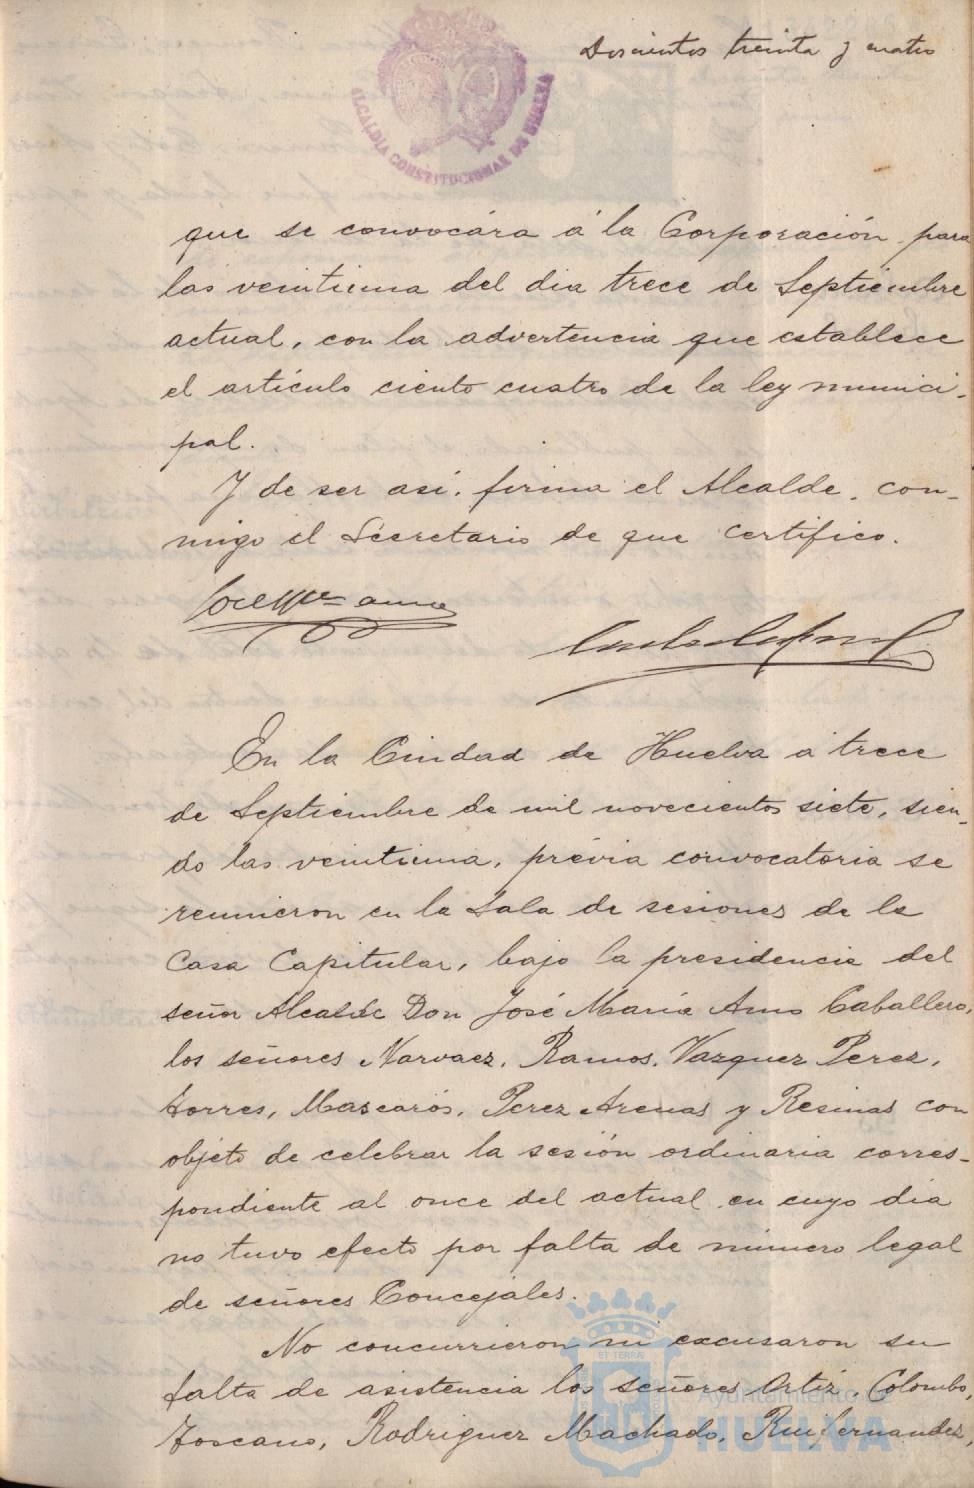 Doscientos treinta y cuatro
ALCALDIA CONSTITUCIONAL DE HUELVA
que se convocára á la Corporación para
las veintiuna del dia trece de Septiembre
actual, con la advertencia que establece
el artículo ciento cuatro de la ley munici-
pal.
Y de ser así, firma el Alcalde, con-
migo el Secretario de que certifico.
En la Ciudad de Huelva a trece
de Septiembre de mil novecientos siete, sien-
do las veintiuna, prévia convocatoria se
reunieron en la Sala de sesiones de la
Casa Capitular, bajo la presidencia del
señor Alcalde Don José María Amo Caballero,
los señores Narvaez, Ramos, Vazquez Perez,
Torres, Mascarós, Perez Arenas y Resinas con
objeto de celebrar la sesión ordinaria corres-
pondiente al once del actual en cuyo dia
no tuvo efecto por falta de número legal
de señores Concejales.
No concurrieron ni excusaron su
falta de asistencia los señores Ortiz, Colombo,
Toscano, Rodriguez Machado, Ruifernandez,
Ayuntamiento de
HUELVA